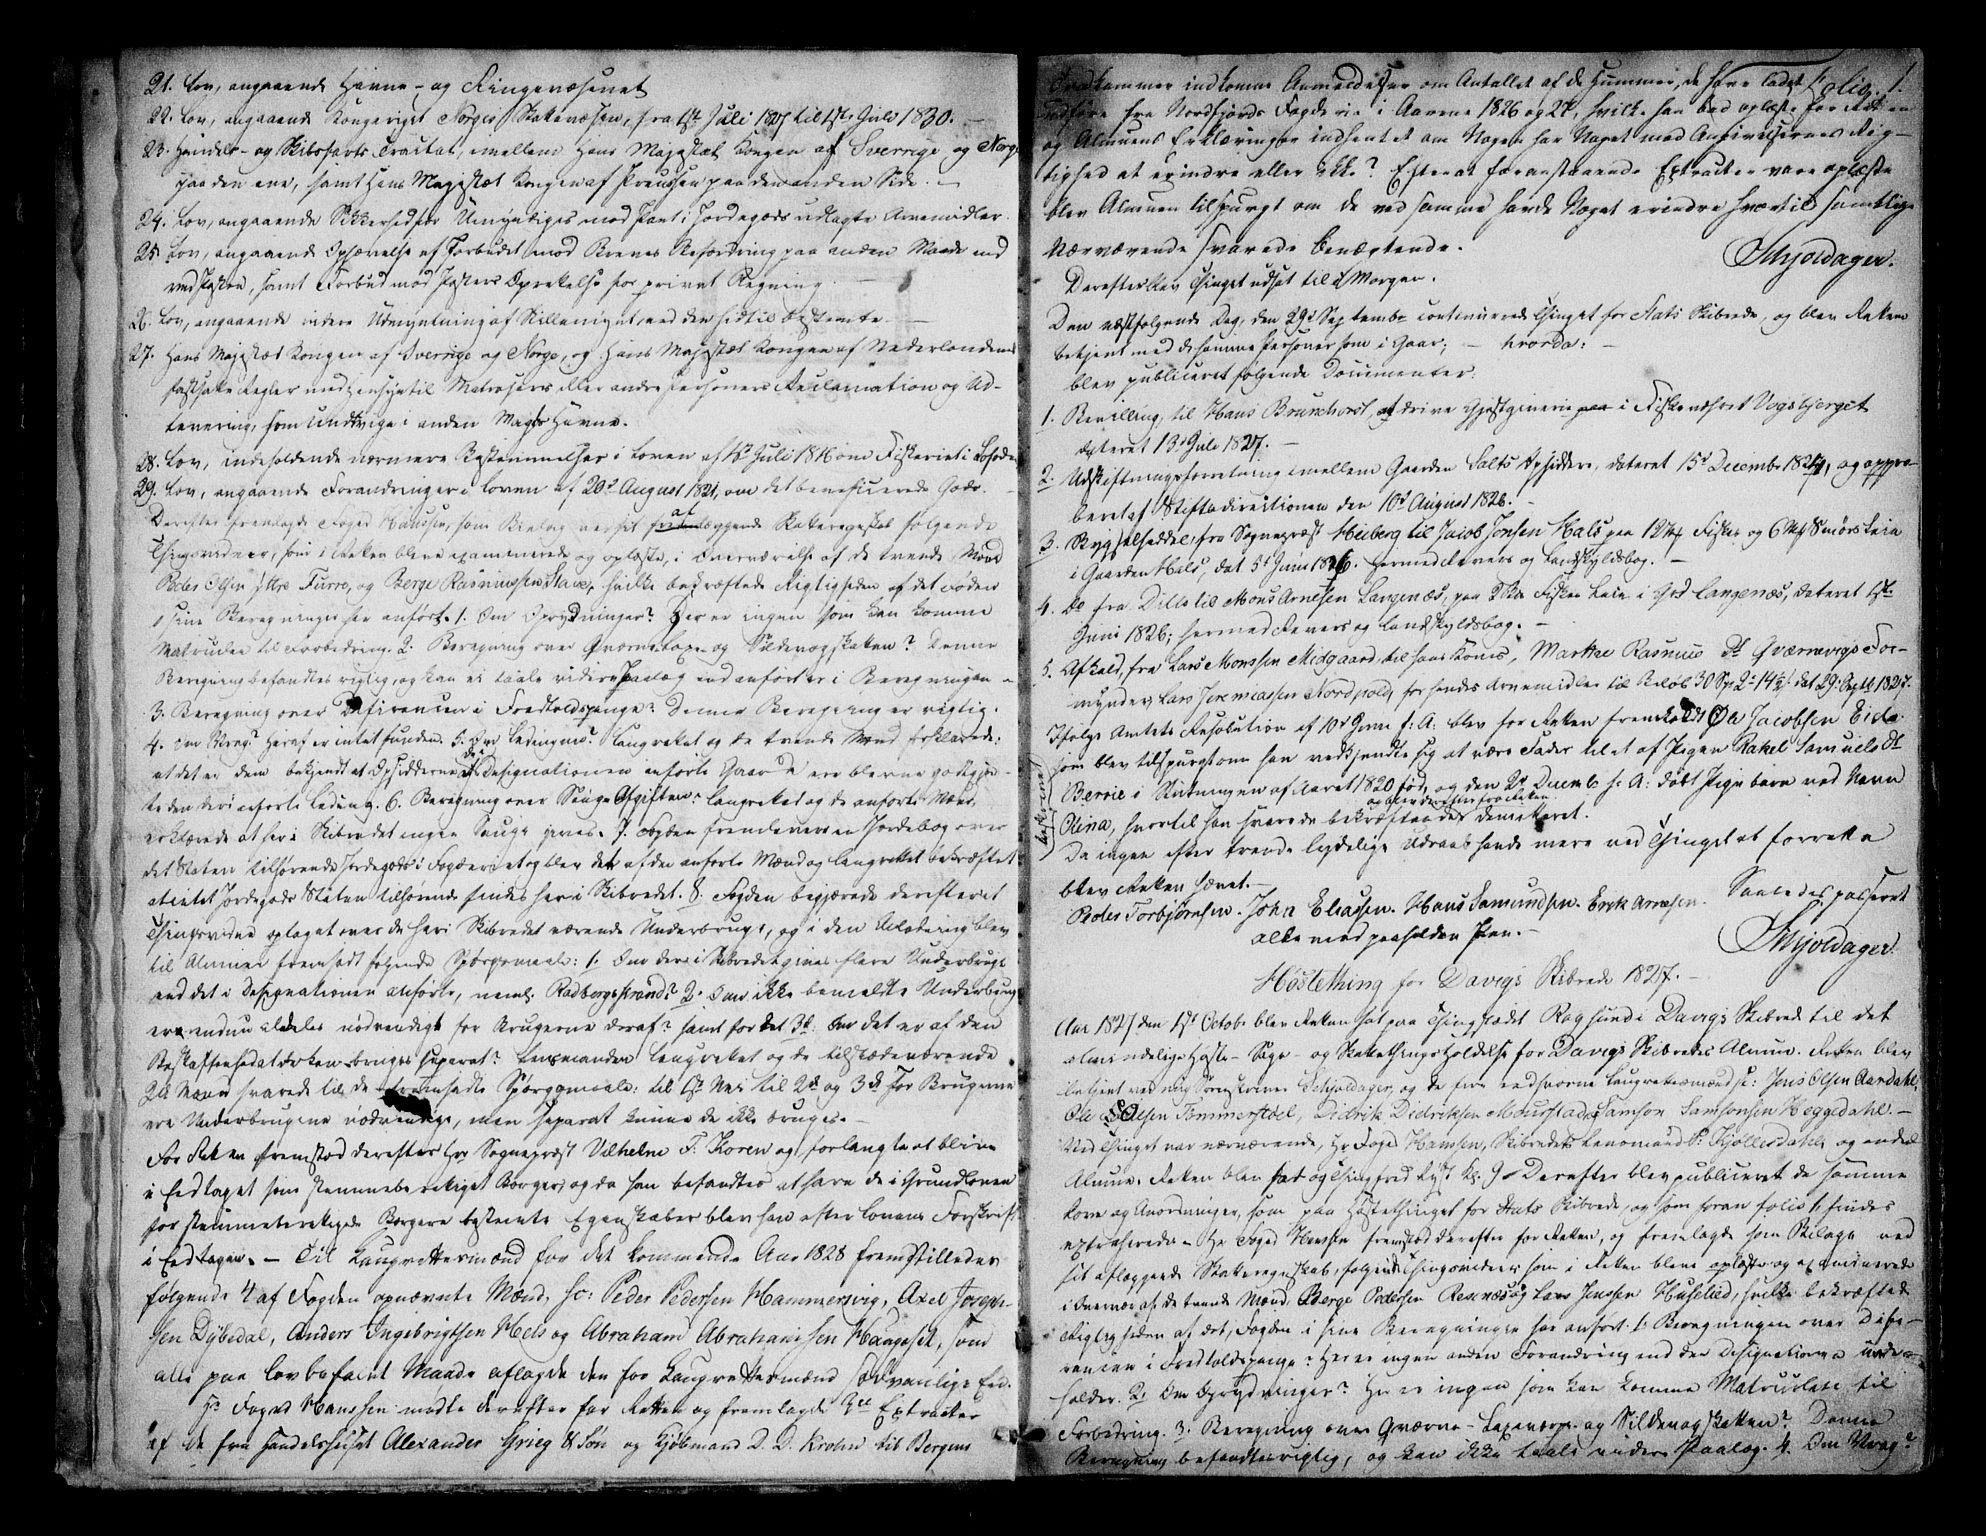 21. Lov, angaaende Havne- og Ringevæsenet
22. Lov, angaaende Kongeriget Norges Skatevæsen, fra 1ste Juli 1827 til 1ste Juli 1830. —
23. Handels- og Skibsfarts Tractat, mellem Hans Majestæt Kongen af Sverrige og Norge
paa den ene, samt Hans Majestæt Kongen af Preussen paa den anden Side. —
24. Lov, angaaende Sikkerhed for Umyndiges mod Pant i Jordegods udlagte Arvemidler.
25. Lov, angaaende Ophævelse af Forbudet mod Breves Befordring paa anden Maade end
med Posten, samt Forbud mod Posters Oprettelse for privat Regning. —
26. Lov, angaaende videre Udmyntning af Skillemynt, end den hidtil bestemte. —
27. Hans Majestæt Kongen af Sverrige og Norge, og Hans Majestæt Kongen af Nederlandenes
fastsatte Regler med Hensyn til Matrosers eller andre Personers Reclamation og Ud-
levering, som undvige i anden Magts Havne.
28. Lov, indeholdende nærmere Bestemmelser i Loven af 1ste Juli 1816 om Fiskeriet i Lofoden
29. Lov, angaaende Forandringer i Loven af 20de August 1821, om det beneficerede Gods. —
Derefter fremlagde Foged Hanssen, som Bielag ved sit aflæggende Skatteregnskab følgende
Thingsvidner, som i Retten bleve examinerede og oplæste, i Overværelse af de tvende Mænd
Peder Olsen ytre Furre, og Berge Rasmussen Stave, hvilke bekræftede Rigtigheden af det Foden
i sine Beregninger har anført. 1. Om Oprydninger? Her er ingen som kan komme
Matriculen til Forbedring. 2. Beregning over Qværne- og Sildevogskatten? Denne
Beregning befandtes rigtig, og kan ei taale videre Paalæg end anført er i Beregningen —
3. Beregning over Differencen i Fredtoldspenge? Denne Beregning er rigtig.
4. Om Vrag? Heraf er intet funden. 5. Om Leding m. Laugrettet og de tvende Mænd erklærede:
at det er dem bekjendt at Opsidderne af de i Designationen anførte Gaarde ere blevne godtgjor-
te den deri anførte Leding. 6. Beregning over Sauge Afgiften: Laugrettet og de anførte Mænd
erklærede at her i Skibredet ingen Sauge gives. 7. Fogden fremleverer en Jordebog over
det Staten tilhørende Jordegods i Fogderiet og blev det af de anførte Mænd og Laugrettet bekræftet
at intet Jordegods Staten tilhørende findes her i Skibredet. 8. Fogden begjærede derefter et
Thingsvidne optaget over de her i Skibredet værende Underbrug, og i den Anledning blev
til Almuen fremsadt følgende Spørgsmaale: 1. Om der i Skibredet gives flere Underbrug
end det i Designationen anførte, neml. Radbergstrand? 2. Om ikke bemeldte Underbrug
ere endnu aldeles nødvendigt for Brugerne deraf? samt for det 3die Om det er af den
Beskaffenhed at det kan bruges separat? Lensmanden Laugrettet og de tilstædeværende
2de Mænd svarede til de fremsadte Spørgsmaale: til 1ste Nei til 2den og 3die For Brugerne
ere Underbrugene nødvendige, men separat kunne de ikke bruges. —
For Retten fremstod derefter Hr. Sogneprest Vilhelm F. Koren og forlangte at blive
i Eed taget som stemmeberettiget Borger, og da han befandtes at have de i Grundloven
for stemmeberettigede Borgere bestemte Egenskaber blev han efter Lovens Forskrift
i Eed tagen. — Til Laugrettesmænd for det kommende Aar 1828 fremstilledes
følgende 4 af Fogden opnævnte Mænd, sc: Peder Pedersen Hammersvig, Axel Joseph-
sen Dybedal, Anders Ingebrigtsen Hels og Abraham Abrahamsen Haugset, som
alle paa lovbefalet Maade aflagde den for Laugrettesmænd sædvanlige Eed.
Hr. Foged Hanssen mødte derefter for Retten og fremlagde 2de Extracter
af de fra Handelshuset Alexander Grieg & Søn og Kjøbmand D. D. Krohn til Bergens
Folio. 1.
Toldkammer indkomne Anmeldelser om Antallet af de Hummer, de have ladet
udføre fra Nordfjords Fogderie i Aarene 1826 og 27, hvilke han bad oplæste for Retten
og Almuens Erklæringer indhentet om Nogen har Noget mod Angivelsernes Rig-
tighed at erindre eller ikke? Efter at foranstaaende Extracter vare oplæste
blev Almuen tilspurgt om de ved samme havde Noget erindre hvortil samtlige
Nærværende svarede benægtende.
Skjoldager.
Derefter blev Thinget udsat til i Morgen.
Den næstfølgende Dag, den 29de September continuerede Thinget for Stats Skibrede, og blev Retten
betjent med de samme Personer som i Gaar; — hvorda: —
blev publiceret følgende Documenter:
1. Bevilling, til Hans Brunchorst, at drive Gjæstgiverie i Fiskeværet Vogsbjerget
dateret 13de Juli 1827. —
2. Udskiftningsforretning imellem Gaarden Salts Opsiddere, dateret 15de December 1824, og appro-
beret af Stiftsdirectionen den 10de August 1826. —
3. Bygselseddel, fra Sogneprest Heiberg til Jacob Jonsen Hals paa 12 Mk Fisker og 6 Mk Smørs Leie
i Gaarden Hals, dat 5te Juni 1826. Hermed Revers og Landskyldsbog. —
4. Do fra Ditto til Mons Arnesen Langenæs, paa Fisker Leie i Grd Langenæs, dateret 1ste
Juni 1826; hermed Revers og Landskyldsbog. —
5. Afkald, fra Lars Monssen Midgaard, til hans Kones, Marthe Rasmus Dr. Qværnevigs For-
mynder, Lars Jeremiassen Nordpold, for hendes Arvemidler til Beløb 30 Sp 2 14 s. dat 29. Septb 1827.
Ifølge Amtets Resolution af 10de Juni f: A: blev for Retten fremkaldt Ole Jacobsen Eide
som blev tilspurgt om han vedkjendte sig at være Fader til et af Pigen Rakel Samuels Dr
Berrie i Slutningen af Aaret 1820 fød, og den 2den Decemb s. A: døbt Pigebarn ved Navn
(beskreven)
og blev dereftere fra Retten
Olina, hvortil han svarede bekræftende demitteret.
Da ingen efter trende lydelige Udraab havde mere ved Thinget at forrette
blev Retten hævet. —
Saaledes passeret
Peder Torbjørnsen. John Eliassen. Hans Samundsen. Erik Arnesen.
alle med paaholden Pen. —
Skjoldager.
Høstething for Davigs Skibrede 1827. —
Aar 1827 den 1ste Octobr blev Retten sat paa Thingstædet Rogsund i Davigs Skibred til det
almindelige Høste- Sage- og Skattethings Holdelse for Davigs Skibredes Almue. Retten blev
betjent ved mig Sorenskriver Skjoldager, og de fire eedsvorne Laugrettesmænd sc: Joris Olsen Aardahl,
Ole Olsen Tømmerstøel, Didrik Didriksen Maurstad, Samson Samsonsen Heggedahl. —
Ved Thinget var nærværende, Hr Foged Hanssen, Skibredets Lensmand P. Kjøllesdahl, og endeel
Almue. Retten blev sat og Thingfred lyst Kl. 9. Derefter blev publiceret de samme
Love og Anordninger, som paa Høstethinget for Stats Skibrede, og som foran folio 1 findes
extraherede. — Hr Foged Hanssen fremstod derefter for Retten, og fremlagde som Bilage ved
sit aflæggende Skatteregnskab, følgende Thingsvidner som i Retten bleve oplæste og examinerede
i Overvær af de tvende Mænd Berge Pedersen Rosnæs og Lars Jenssen Huselied, hvilke bekræftede
Rigtigheden af det, Fogden i sine Beregninger har anført. 1. Beregningen over Diffe-
rencen i Fredtoldspenge? Her er ingen anden Forandring end den Designationen inde-
holder. 2. Om Oprydninger? Her er ingen som kan komme Matriculen til
Forbedring. 3. Beregning over Qværne- Laxevarps- og Sildevogskatten? Denne
Beregning befandtes rigtig, og kan ikke taale videre Paalæg. 4. Om Vrag?